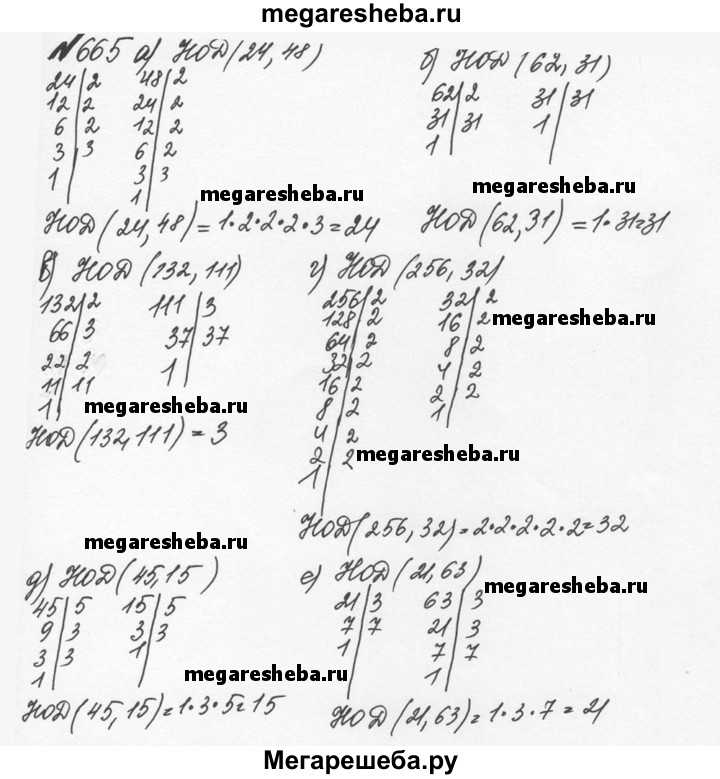 megaresheba.ru
№665 а) НОД(24, 48)
24|2 48|2
12|2 24|2
6|2 12|2
3|3 6|2
1| 3|3
1|
megaresheba.ru
НОД(24, 48) = 1·2·2·2·3=24
б) НОД(62, 31)
62|2 31|31
31|31 1|
1|
megaresheba.ru
НОД(62, 31) = 1·31=31
в) НОД(132, 111)
132|2 111|3
66|3 37|37
22|2 1|
11|11
1|
megaresheba.ru
НОД(132, 111) = 3
г) НОД(256, 32)
256|2 32|2
128|2 16|2
64|2 8|2
32|2 4|2
16|2 2|2
8|2 1|
4|2
2|2
1|
megaresheba.ru
megaresheba.ru
НОД(256, 32)=2·2·2·2·2=32
megaresheba.ru
д) НОД(45, 15)
45|5 15|5
9|3 3|3
3|3 1|
1|
megaresheba.ru
НОД(45, 15)=1·3·5=15
е) НОД(21, 63)
21|3 63|3
7|7 21|3
1| 7|7
1|
megaresheba.ru
НОД(21, 63)=1·3·7=21
Мегарешеба.ру